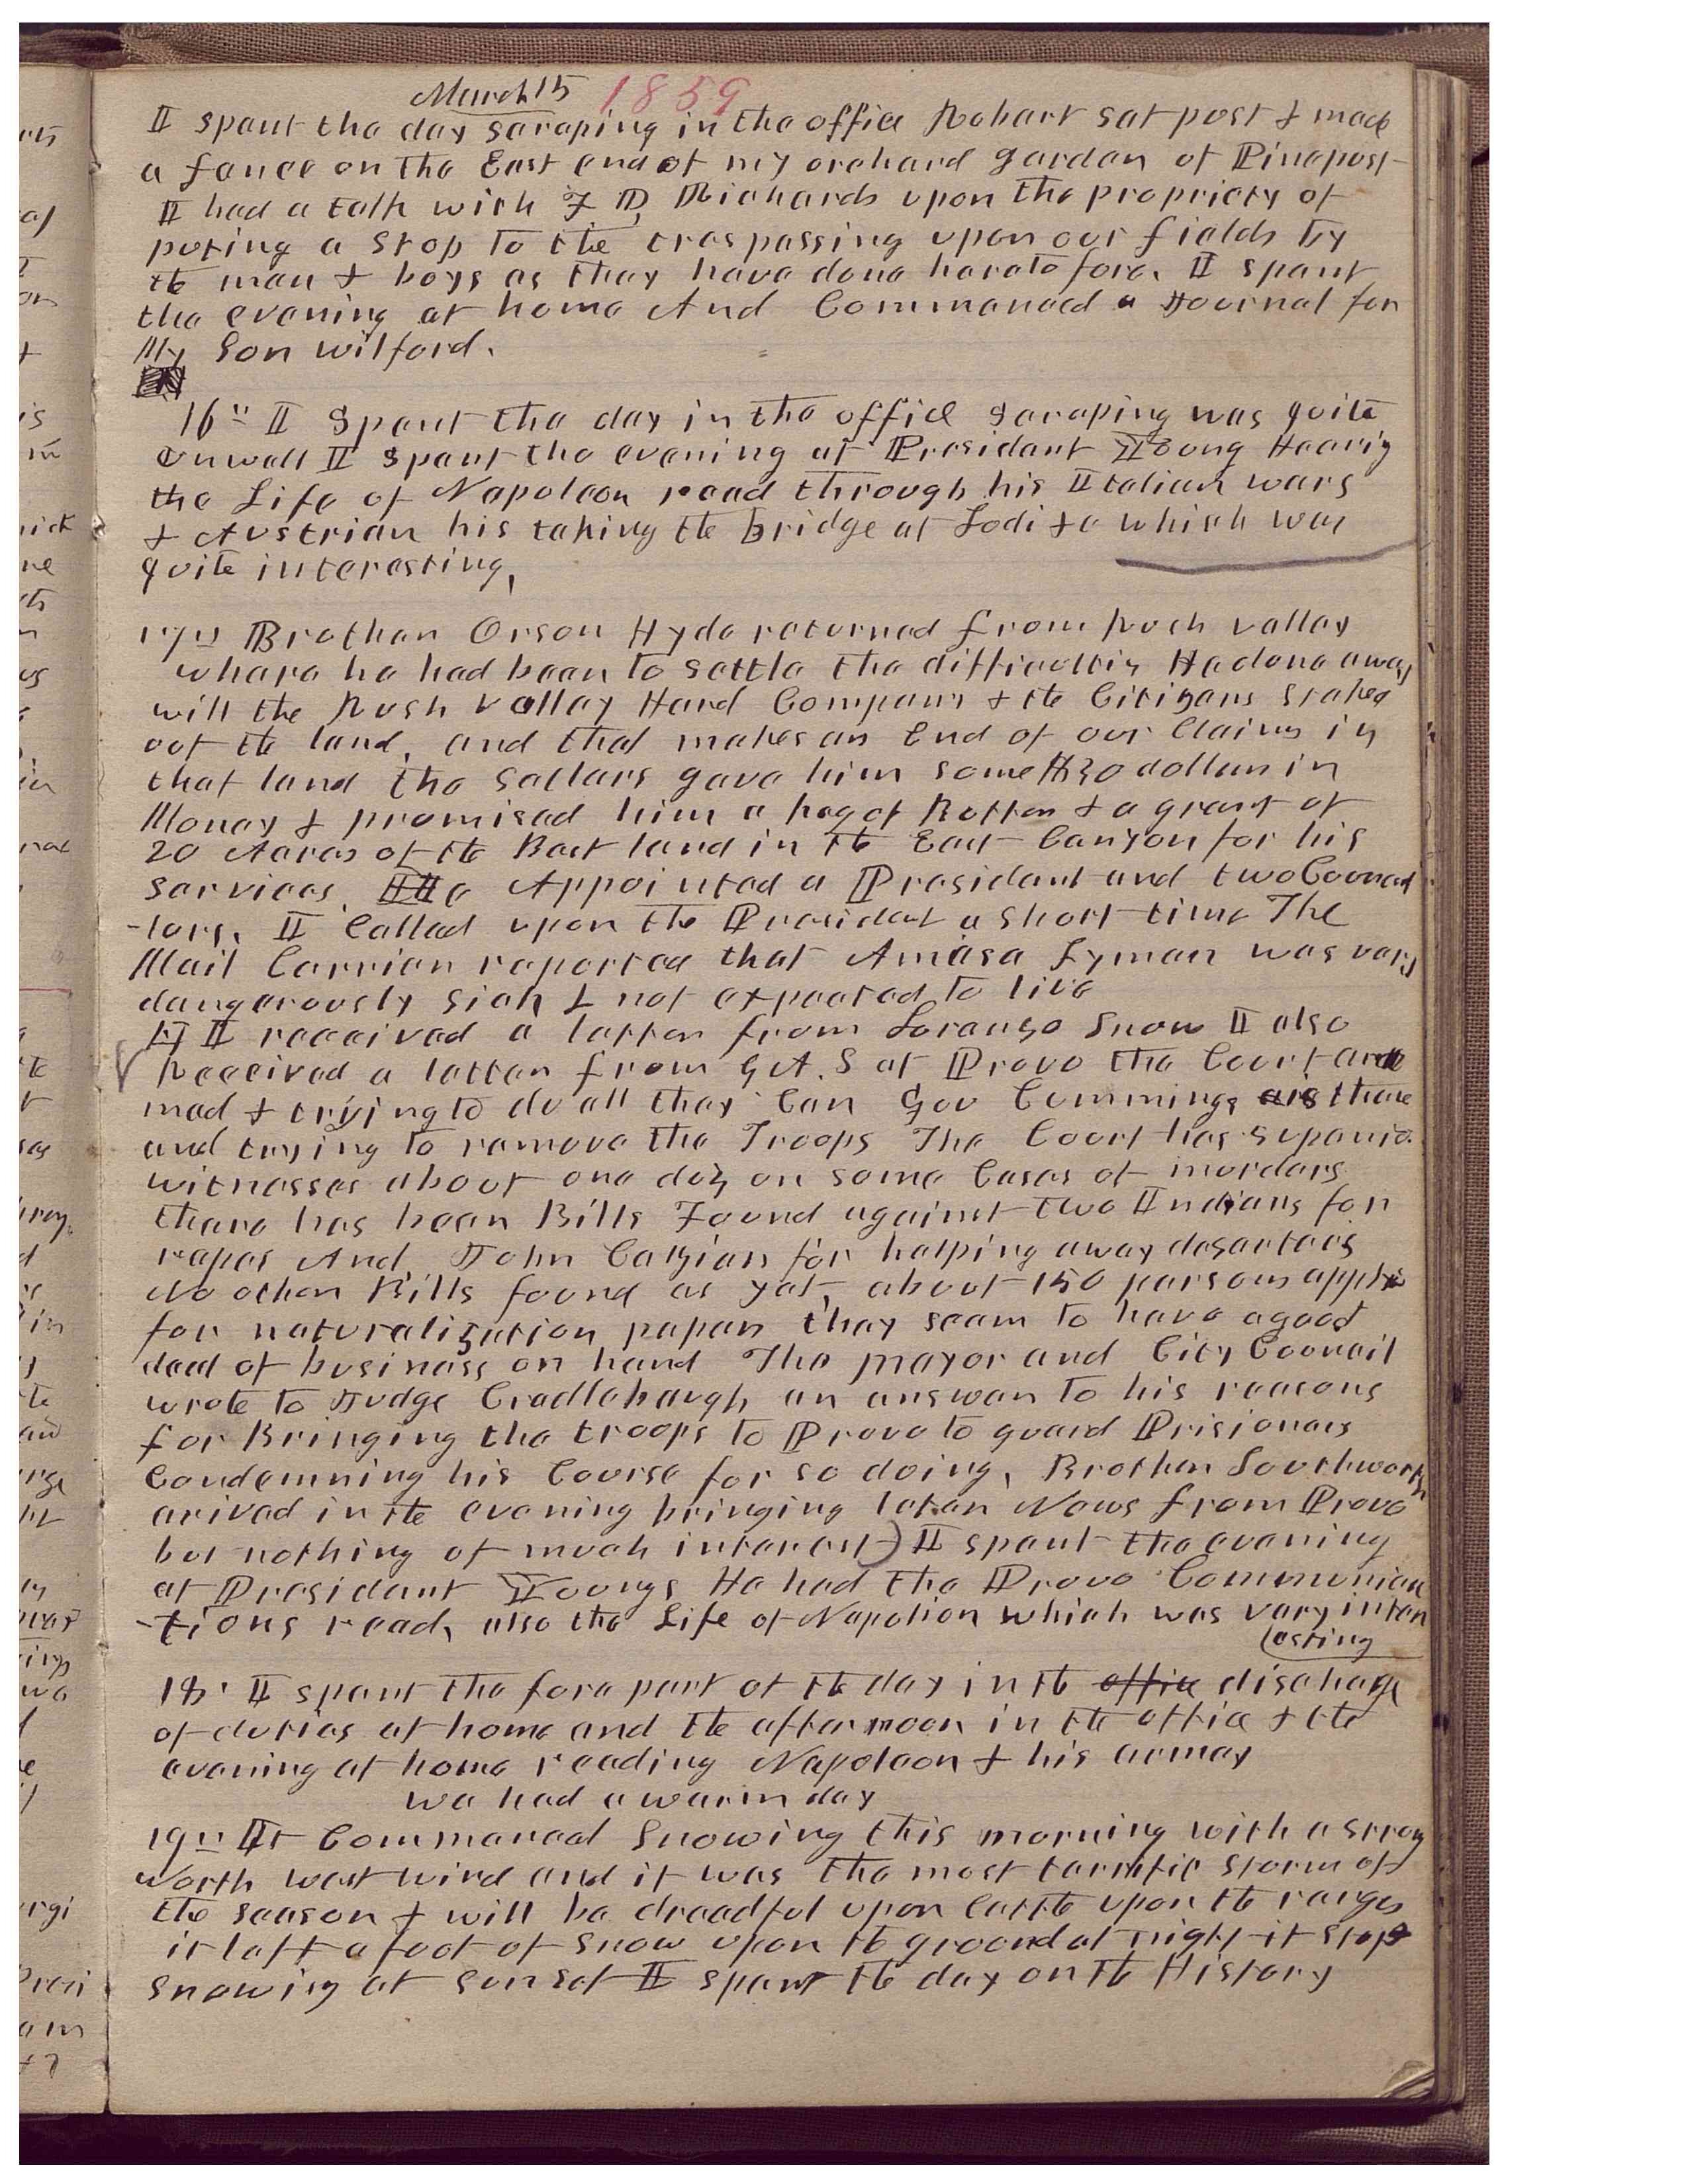 March 15 1859
I spent the day scraping in the office Robart sat post & made
a fence on the East end of my orchard garden of Pine post
I had a talk with F D, Richards upon the propriety of
puting a stop to the trespassing upon our fields by
the men & boys as they have done heretofore. I spent
the evening at home And Commenced a Journal for
My Son Wilford.
16th I Spent the day in the office scraping was quite
unwell I spent the evening at President Young Hearig
the Life of Napoleon read through his Italian wars
& Austrian his taking the bridge at Lodi &c which was
quite interesting,
17th Brother Orson Hyde returned from Rush valley
where he had been to settle the difficultis He done away
will the Rush valley Herd Company & the Citizens staked
out the land, and that makes an End of our Claims in
that land the settlers gave him some $30 dollars in
Money & promised him a keg of Butter & a grant of
20 Acres of the Best land in the East Canyon for his
services. He Appointed a President and two Councel
-lors. I Called upon the President a short time The
Mail Carrier reported that Amasa Lyman was very
dangerously sick & not expected to live
I received a letter from Lorenzo Snow I also
Received a letter from G A. S at Provo the Court are
mad & trying to do all they Can Gov Cummings is there
and trying to remove the Troops The Court has supenia
witnesses about one doz on some Cases of murders
there has been Bills Found against two Indians for
rapes And John for helping away deserters
No other Bills found as yet, about 150 persons applie
for naturalization paper they seem to have a good
deal of business on hand The mayor and City Council
wrote to Judge Cradlebaugh an answer to his reasons
for Bringing the troops to Provo to guard Prisioners
Condemning his Course for so doing, Brother Southworth
arived in the evening bringing later News from Provo
but nothing of much interest) I spent the evening
at President Youngs He had the Provo Communica
-tions read, also the Life of Napolion which was very inter
esting
18. I spent the fore part of the day in the office discharge
of duties at home and the afternoon in the office & the
evening at home reading Napoleon & his armey
we had a warm day
19th It Commenced Snowing this morning with a strong
North west wind and it was the most terrific storm of
the season & will be dreadful upon Cattle upon the ranges
it left a foot of snow upon the ground at night it stop
snowing at sunset I spent the day on the History